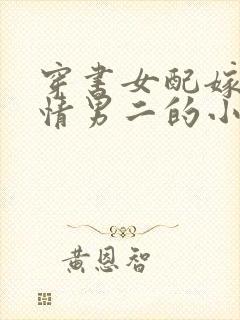 穿书女配嫁
情男二的小
黄恩智